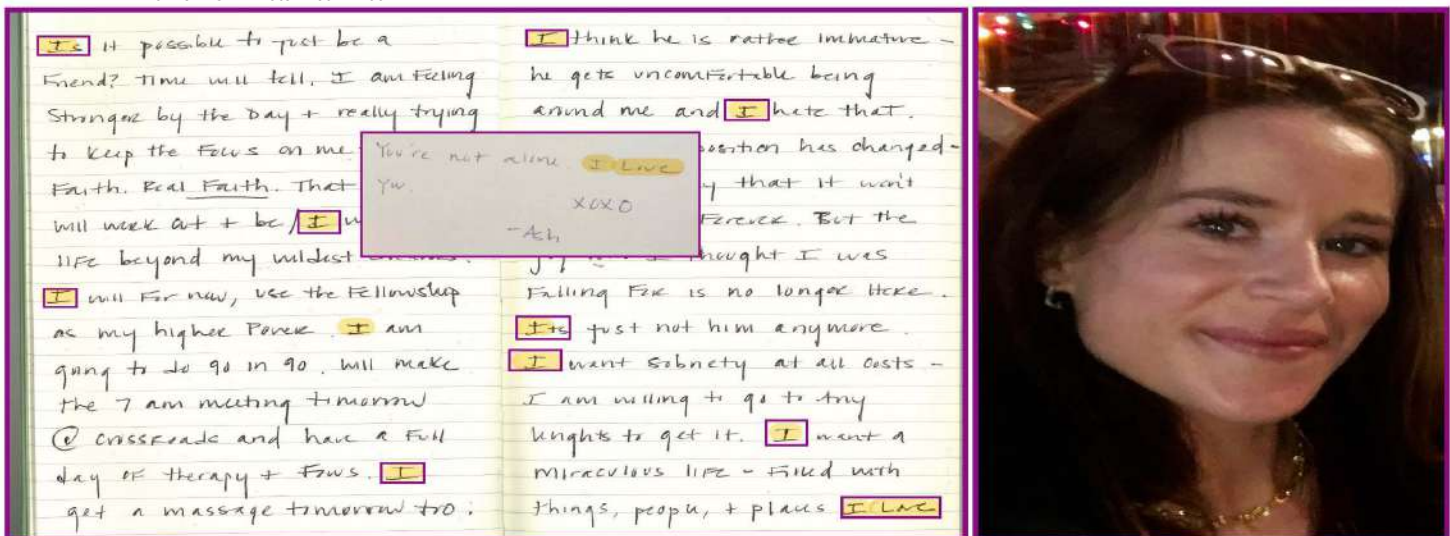 Is it possible to just be a
Friend? Time will tell. I am Feeling
Stronger by the Day + really trying
to keep the Focus on me
Faith. Real Faith. That
will work out + be / I
life beyond my wildest
I will For now, use the Fellowship
as my higher Power. I am
going to do 90 in 90. Will make
the 7 am meeting tomorrow
@ Crossroads and have a Full
day of therapy + Focus. I
get a massage tomorrow too.
You're not alone. I Love
You.
XOXO
-Ash
I think he is rather immature -
he gets uncomfortable being
around me and I hate that.
has changed-
that it won't
Forever. But the
I thought I was
Falling For is no longer Here.
Its just not him anymore.
I want sobriety at all costs -
I am willing to go to Any
lenghts to get it. I want a
miraculous life - Filled with
things, people, + places I Love